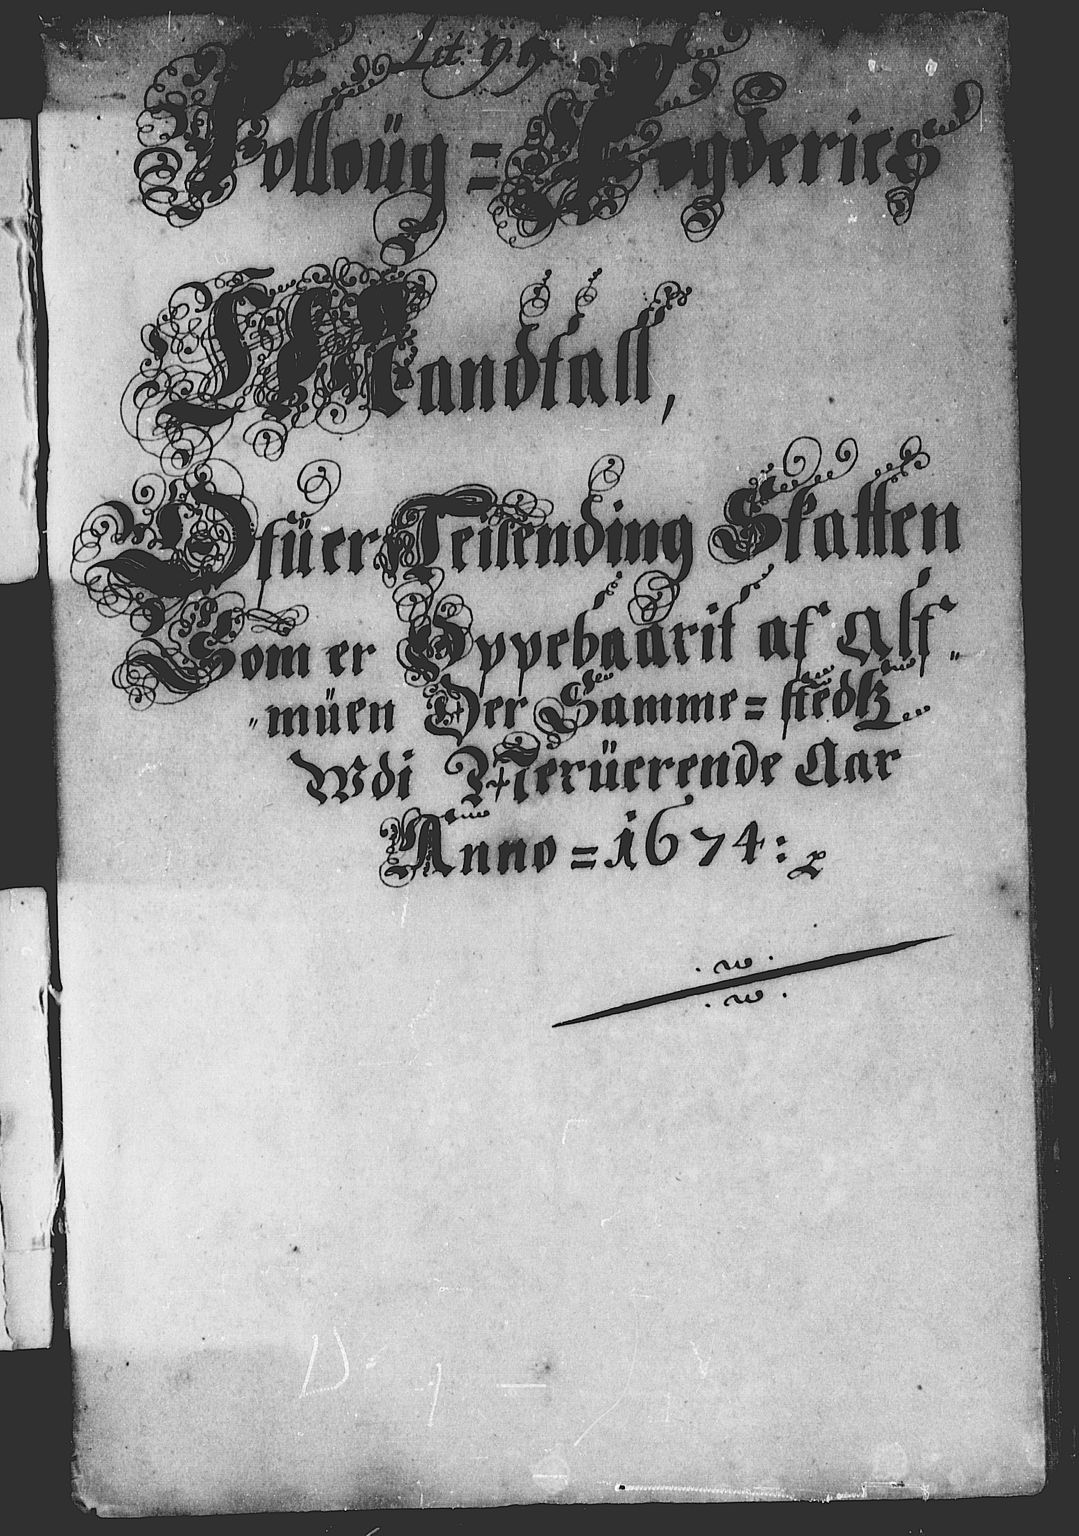 Lit: N. N.
Folloüg = Fogderies
Mandtall,
Ofüer Teilending Skatten
Som er Oppebaarit af Alt„
„müen Der Samme = stedtz
Wdi Nerüerende Aar
Anno = 1674: